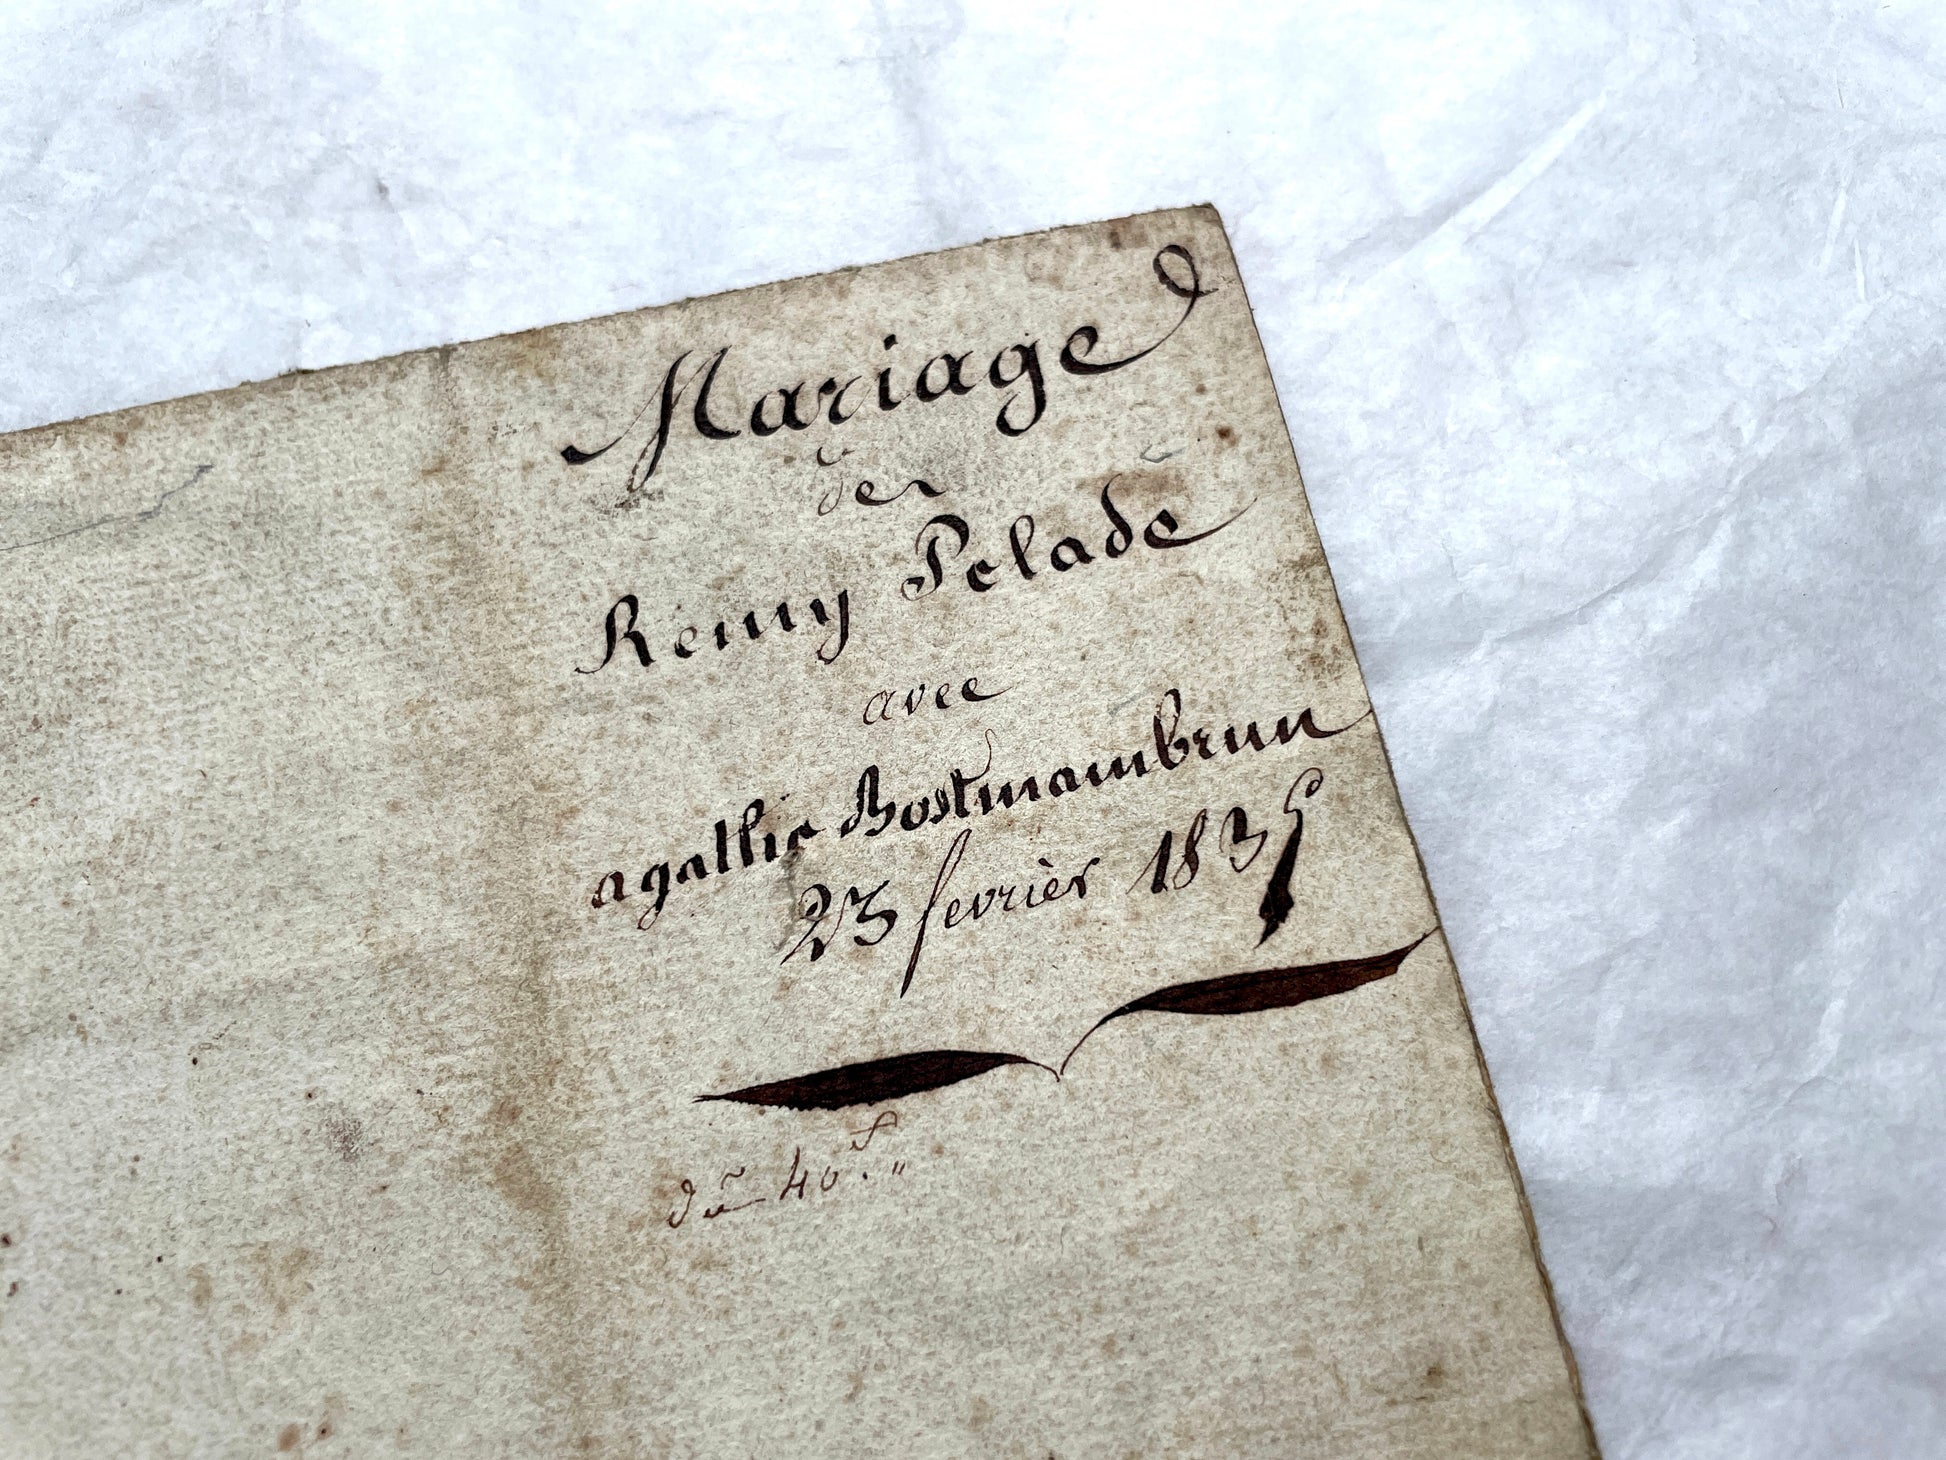 Mariage
de
Remy Pelade
avec
agathe Bostmambrun
23 fevrièr 1835
dû 40 f. "